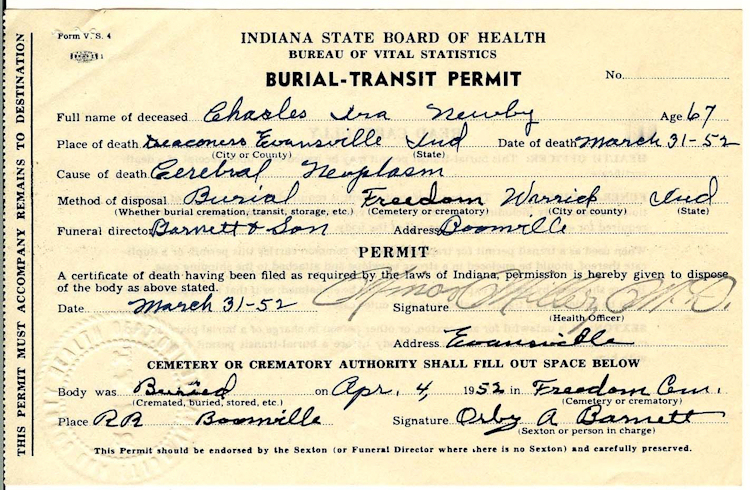 Form V. S. 4
INDIANA STATE BOARD OF HEALTH
BUREAU OF VITAL STATISTICS
BURIAL-TRANSIT PERMIT
No.
Full name of deceased Charles Ira Newby Age 67
Place of death Deaconess Evansville Ind Date of death March 31-52
(City or County) (State)
Cause of death Cerebral Neoplasm
Method of disposal Burial Freedom Warrick Ind
(Whether burial cremation, transit, storage, etc.) (Cemetery or crematory) (City or county) (State)
Funeral director Barnett & Son Address Boonville
PERMIT
A certificate of death having been filed as required by the laws of Indiana, permission is hereby given to dispose
of the body as above stated.
Date March 31-52 Signature Minor Miller M.D.
(Health Officer)
Address Evansville
CEMETERY OR CREMATORY AUTHORITY SHALL FILL OUT SPACE BELOW
Body was Buried on Apr. 4, 1952 in Freedom Cem.
(Cremated, buried, stored, etc.) (Cemetery or crematory)
Place RR Boonville Signature Orby A Barnett
(Sexton or person in charge)
This Permit should be endorsed by the Sexton (or Funeral Director where there is no Sexton) and carefully preserved.
THIS PERMIT MUST ACCOMPANY REMAINS TO DESTINATION